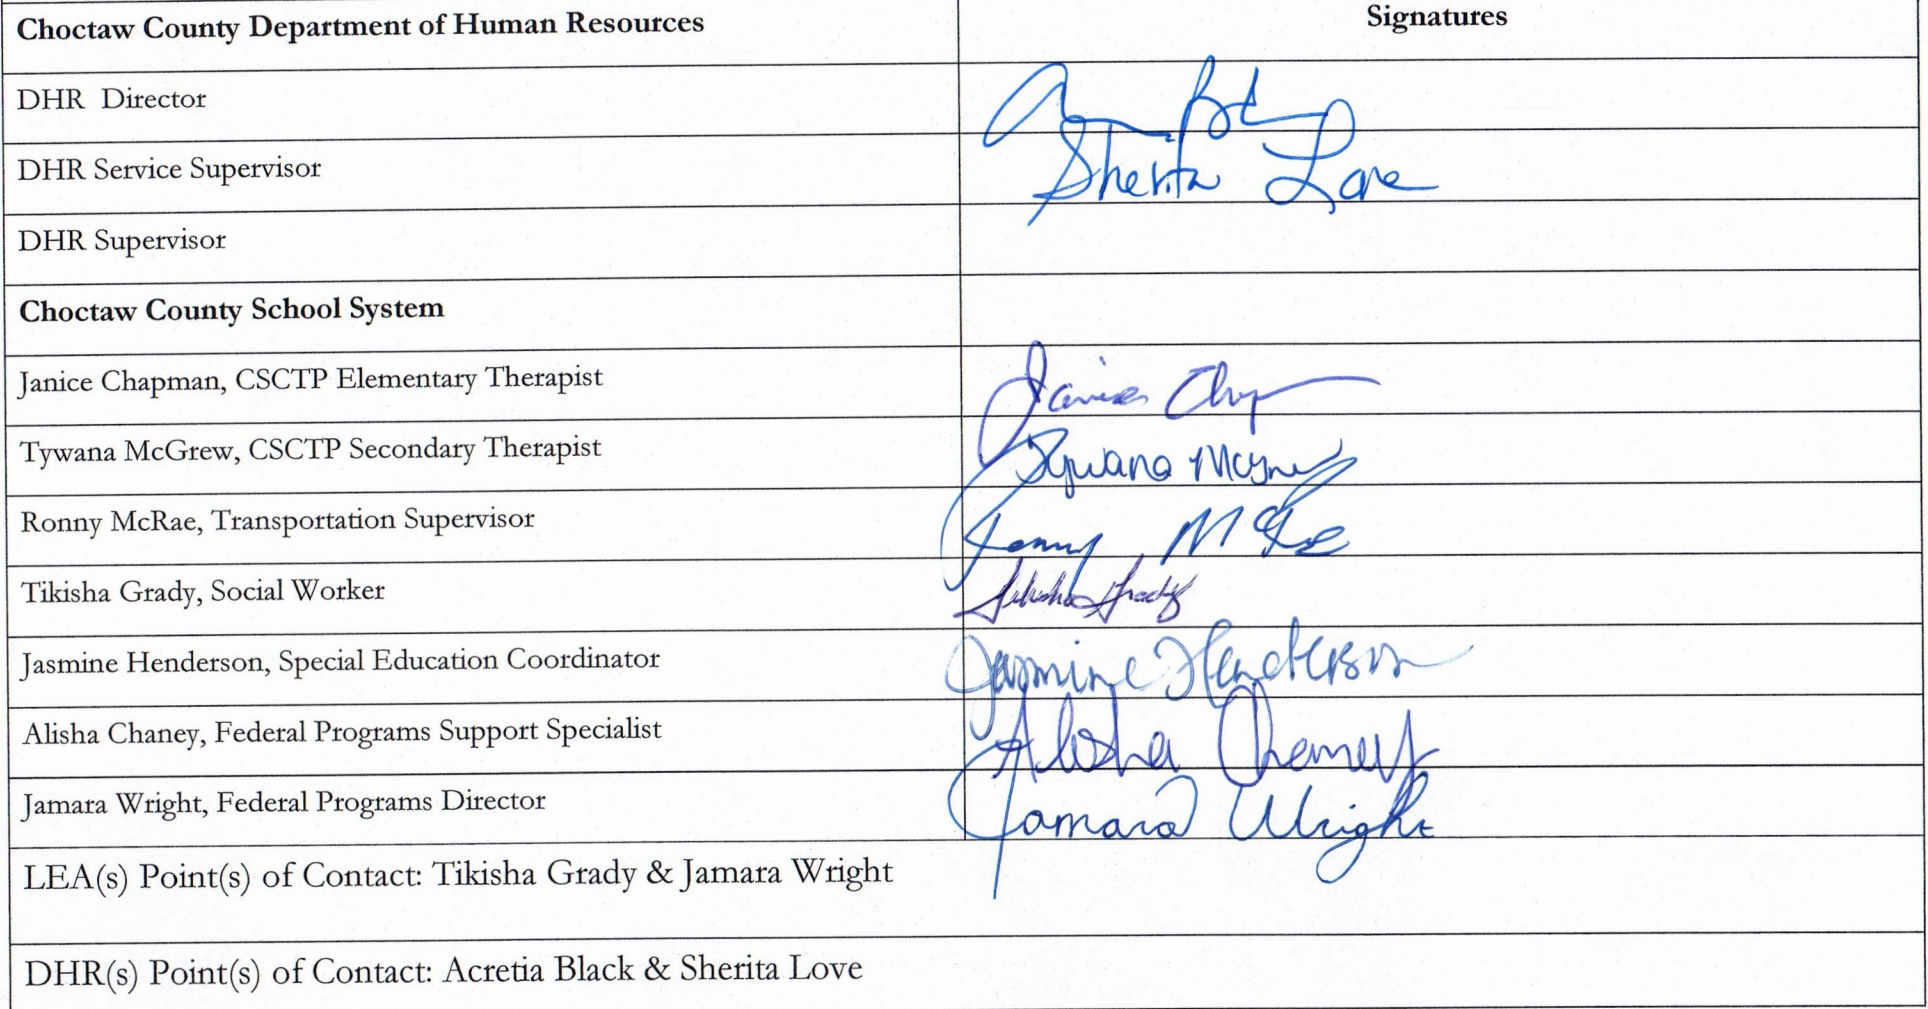 Choctaw County Department of Human Resources Signatures
DHR Director
DHR Service Supervisor Sherita Love
DHR Supervisor
Choctaw County School System
Janice Chapman, CSCTP Elementary Therapist Janice
Tywana McGrew, CSCTP Secondary Therapist Tywana
Ronny McRae, Transportation Supervisor Ronny McRae
Tikisha Grady, Social Worker Tikisha Grady
Jasmine Henderson, Special Education Coordinator Jasmine Henderson
Alisha Chaney, Federal Programs Support Specialist Alisha Chaney
Jamara Wright, Federal Programs Director Jamara Wright
LEA(s) Point(s) of Contact: Tikisha Grady & Jamara Wright
DHR(s) Point(s) of Contact: Acretia Black & Sherita Love